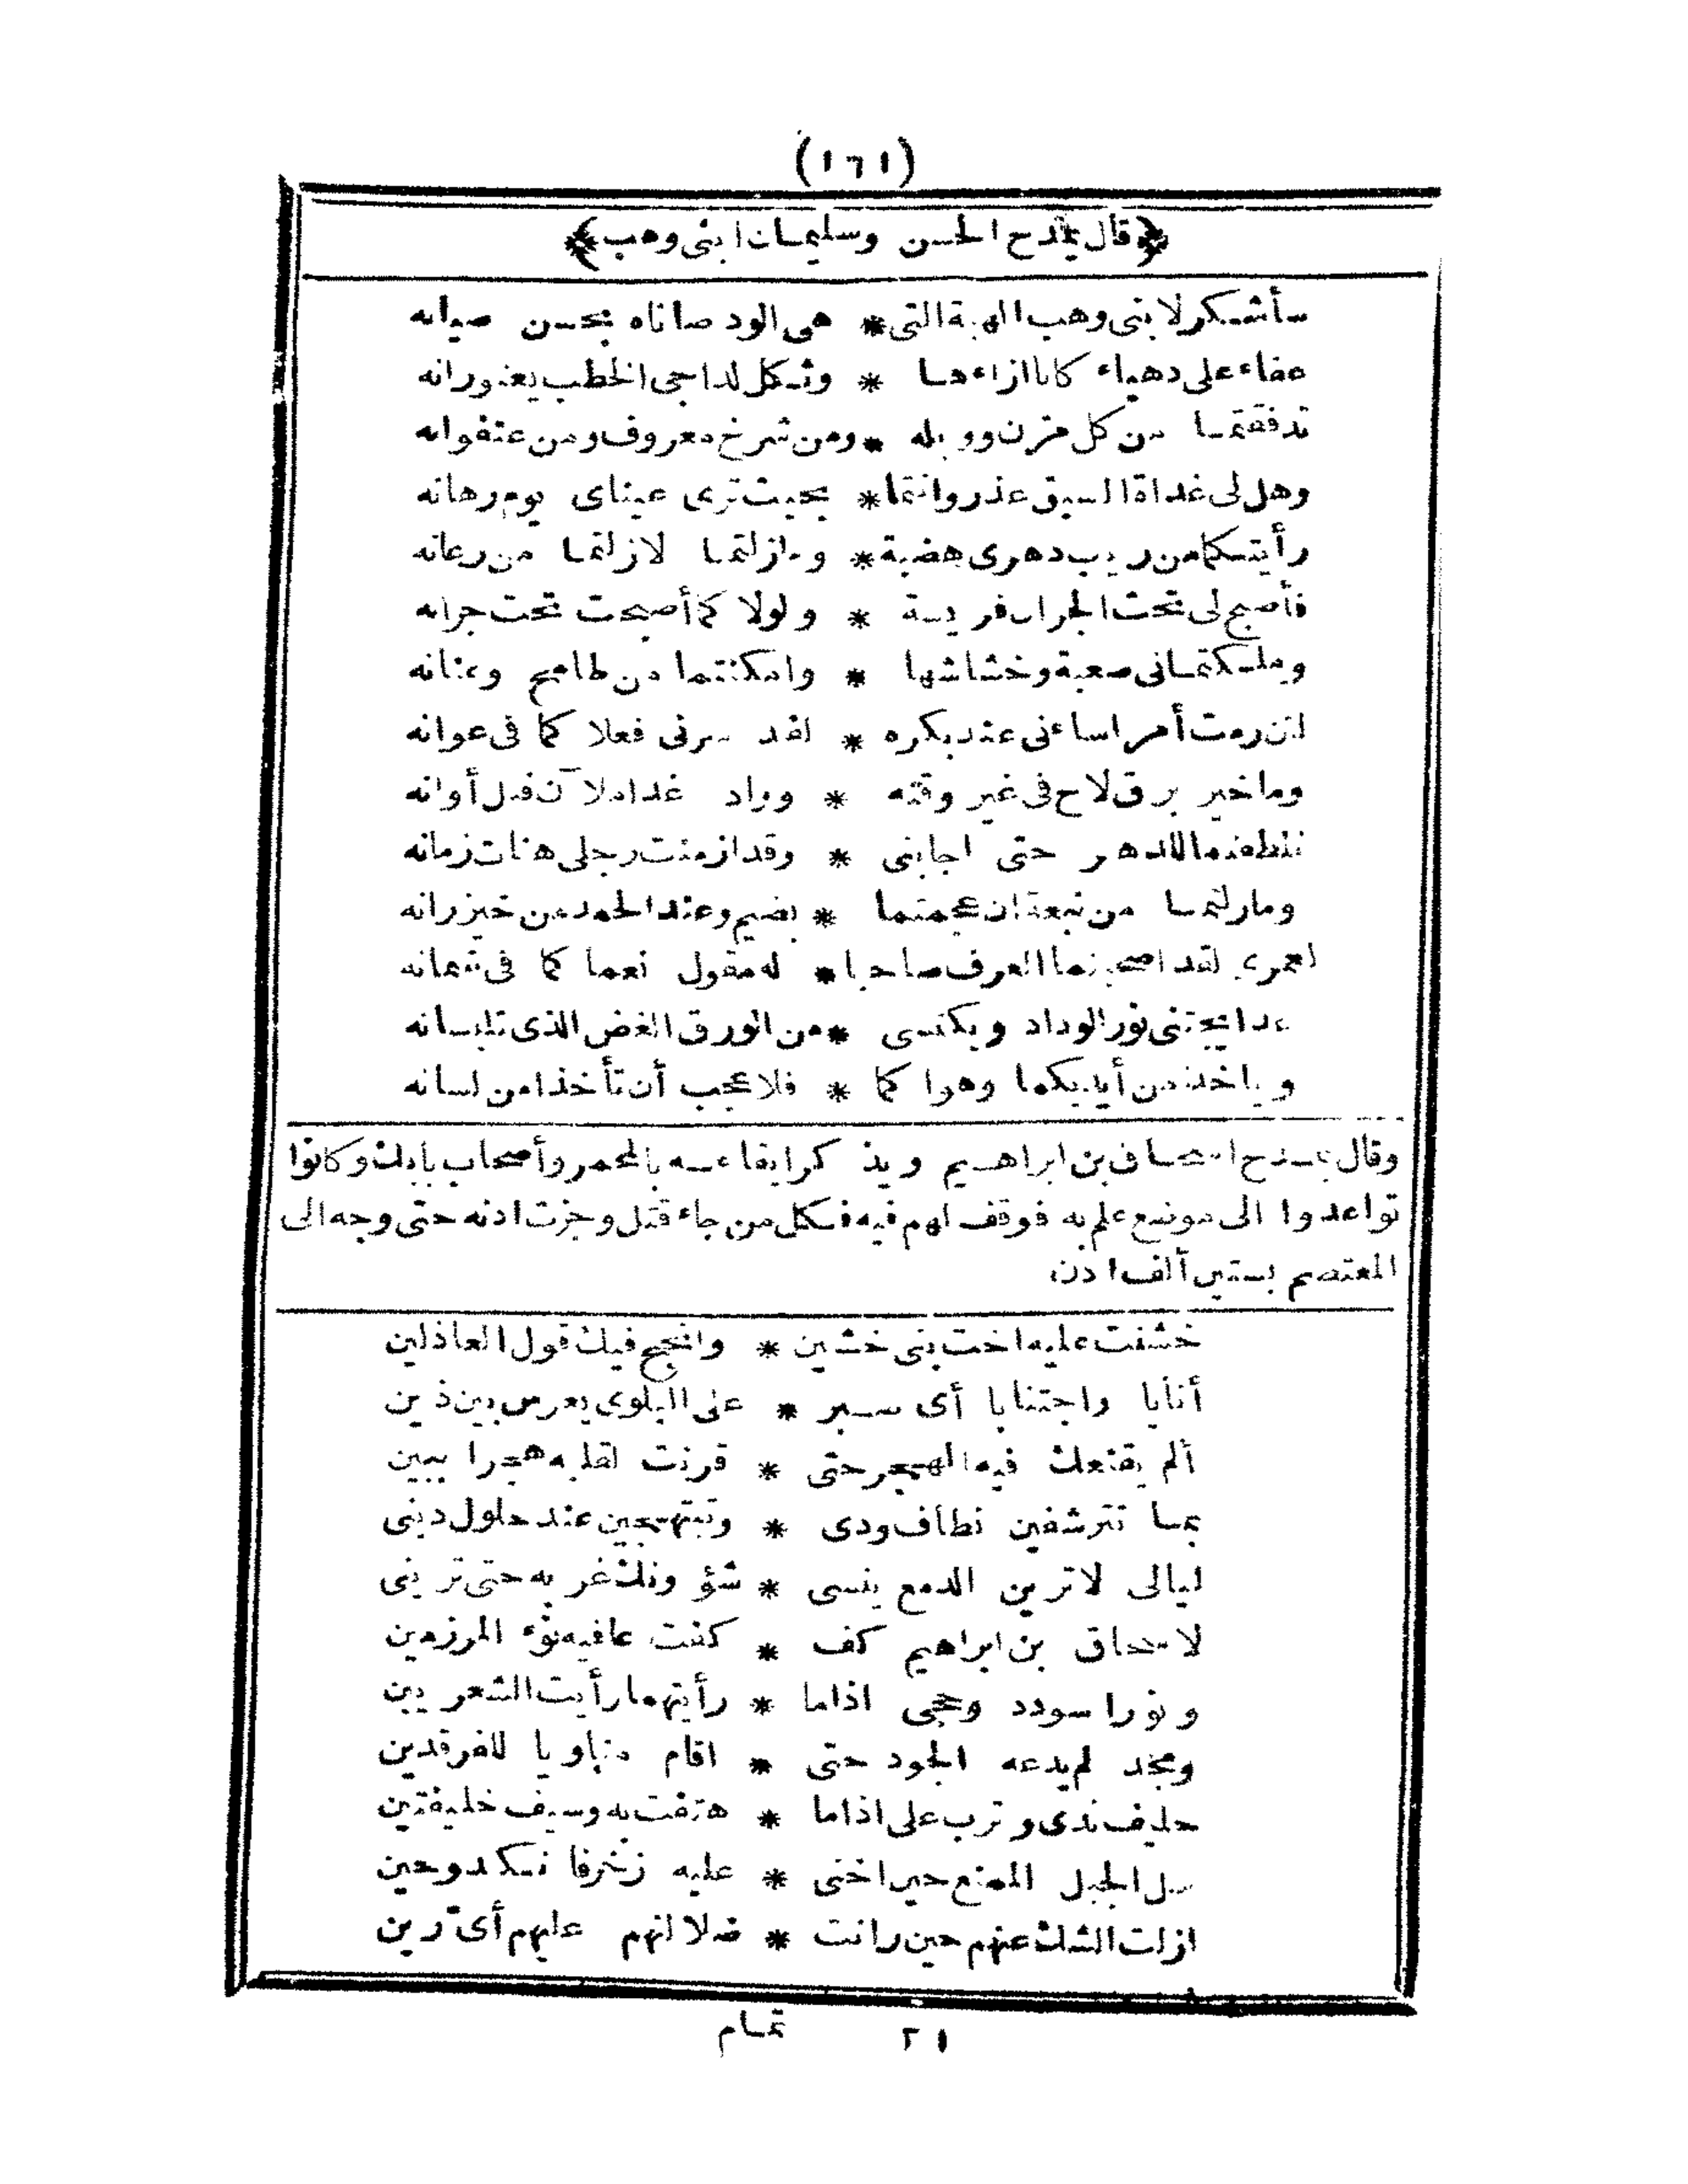 (١٦١)
﴿قال يمدح الحسن وسليمان ابنى وهب﴾
سأشكر لابنى وهب الهبة التى * هى الود صاناه بحسن صيانه
عفاء على دهياء كانا ازاءها * وثكل لداجى الخطب يعتورانه
تدفقتما من كل مزن ووبله * ومن شرخ معروف ومن عنفوانه
وهل لى غداة السبق عذر وانتما * بحيث ترى عيناى يوم رهانه
رأيتكما من ريب دهرى هضبة * ومازلتما لازلتما من رعانه
فأصبح لى تحت الجران فريسة * ولولا كما أصبحت تحت جرانه
وملكتمانى صعبة وخشاشها * وامكنتما من طامح وعنانه
لئن رمت أمرا ساءنى عند بكره * لقد سرنى فعلا كما فى عوانه
وما خير برق لاح فى غير وقته * وواد غدا ملآن قبل أوانه
تلطفتما للدهر حتى اجابنى * وقد ازمنت رجلى هنات زمانه
ومازلتما من نبعة ان عجمتما * بضيم وعند الحمد من خيزرانه
لعمرى لقد اصحبتما العرف صاحبا * له مقول نعما كما فى ضمانه
غدا يجتنى نور الوداد ويكتسى * من الورق الغض الذى تلبسانه
وياخذ من أيديكما وهوا كما * فلا عجب أن تأخذا من لسانه
وقال يمدح اسحاق بن ابراهيم ويذكر ايقاعه بالمحمر وأصحاب بابك وكانوا
تواعدوا الى موضع علم به فوقف لهم فيه فكل من جاء قتل وجزت اذنه حتى وجه الى
المعتصم بستين ألف اذن
خشنت عليه اخت بنى خشين * وانجح فيك قول العاذلين
أنأيا واجتنابا أى صبر * على البلوى يعرس بين ذين
ألم يقنعك فيه الهجر حتى * قرنت لقلبه هجرا ببين
بما تترشفين نطاف ودى * وتبتهجين عند حلول دينى
ليالى لاترين الدمع ينسى * شؤونك غربه حتى ترينى
لاسحاق بن ابراهيم كف * كفت عافيه نوء المرزمين
ونورا سودد وحجى اذاما * رأيتهما رأيت الشعريين
ومجد لم يدعه الجود حتى * اقام مناويا للفرقدين
حليف ندى وترب على اذاما * هتفت به وسيف خليفتين
سل الجبل الممنع حين اخنى * عليه زخرفا نكد وحين
ازلت الشك عنهم حين رانت * ضلالتهم عليهم أى رين
٢١ تمام